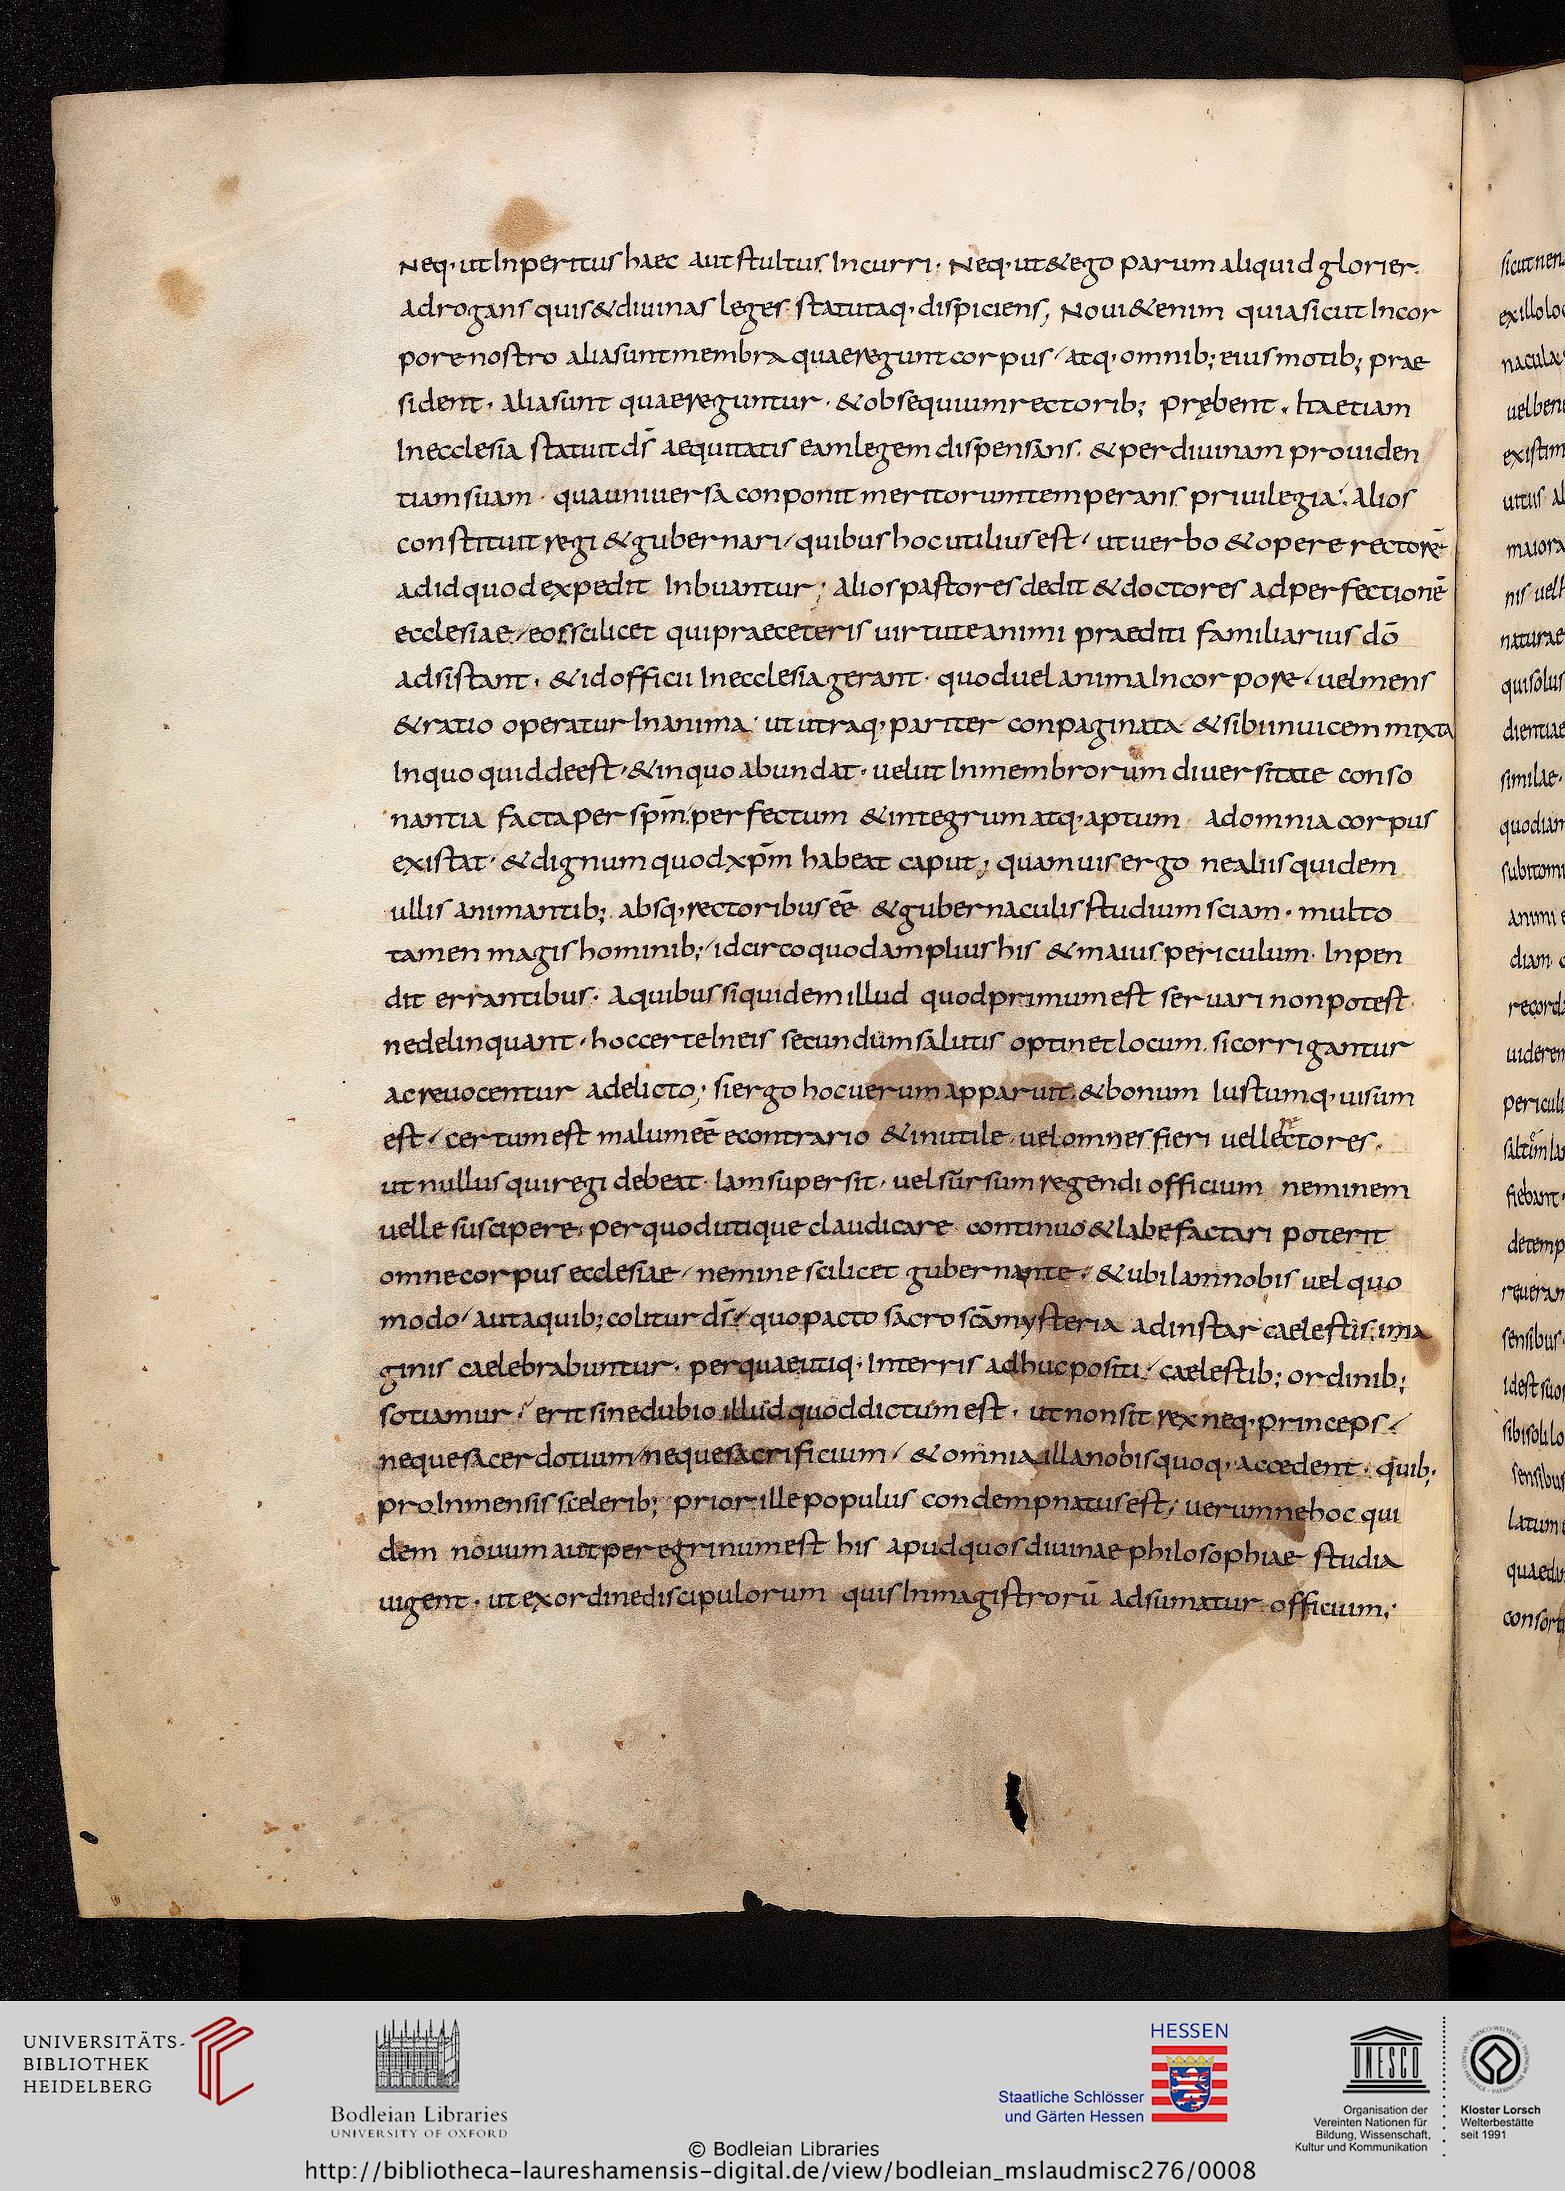 Neq· ut Inperitus haec aut stultus Incurri· Neq· ut & ego parum aliquid glorier·
adrogans quis & diuinas leges statutaq· dispiciens; Noui & enim quia sicut Incor
pore nostro alia sunt membra quae regunt corpus / atq· omnib; eius motib; prae
sident· alia sunt quae reguntur· & obsequium rectorib; prębent· Ita etiam
In ecclesia statuit ds̄ aequitatis eam legem dispensans· & per diuinam prouiden
tiam suam· qua uniuersa conponit meritorum temperans priuilegia· alios
constituit regi & gubernari / quibus hoc utilius est / ut uerbo & opere rectorē
ad id quod expedit Inbuantur; alios pastores dedit & doctores ad perfectionē
ecclesiae / eos scilicet qui praeceteris uirtute animi praediti familiarius dō
adsistant· & id officii In ecclesia gerant· quod uel anima In corpore / uel mens
& ratio operatur In anima· ut utraq· pariter conpaginata & sibi inuicem mixta
In quo quid deest· & in quo abundat· uelut In membrorum diuersitate conso
nantia facta per spm̄ / perfectum & integrum atq· aptum ad omnia corpus
existat· & dignum quod xpm̄ habeat caput; quamuis ergo ne aliis quidem
ullis animantib; absq· rectoribus eē & gubernaculis studium sciam· multo
tamen magis hominib; / idcirco quod amplius his & maius periculum· Inpen
dit errantibus· a quibus siquidem illud quod primum est seruari non potest
ne delinquant· hoc certe In eis secundum salutis optinet locum· si corrigantur
ac reuocentur a delicto; si ergo hoc uerum apparuit· & bonum Iustumq· uisum
est / certum est malum eē econtrario & inutile uel omnes fieri uelle rectores·
ut nullus qui regi debeat· Iam supersit· uel sursum regendi officium neminem
uelle suscipere· per quod utique claudicare continuo & labefactari poterit
omne corpus ecclesiae / nemine scilicet gubernante· & ubi Iam nobis uel quo
modo / aut a quib; colitur ds̄ / quo pacto sacro scā mysteria ad instar caelestis ima
ginis caelebrabuntur· per quae utiq· In terris adhuc positi / caelestib; ordinib;
sotiamur / erit sine dubio illud quod dictum est· ut non sit rex neq· princeps /
neque sacerdotium / neque sacrificium / & omnia illa nobis quoq· accedent· quib;
pro Inmensis scelerib; prior ille populus condempnatus est; uerum ne hoc qui
dem nouum aut peregrinum est his apud quos diuinae philosophiae studia
uigent· ut ex ordine discipulorum quis In magistrorū adsumatur officium;
UNIVERSITÄTS-
BIBLIOTHEK
HEIDELBERG
Bodleian Libraries
UNIVERSITY OF OXFORD
HESSEN
Staatliche Schlösser
und Gärten Hessen
UNESCO
Organisation der
Vereinten Nationen für
Bildung, Wissenschaft,
Kultur und Kommunikation
Kloster Lorsch
Welterbestätte
seit 1991
© Bodleian Libraries
http://bibliotheca-laureshamensis-digital.de/view/bodleian_mslaudmisc276/0008